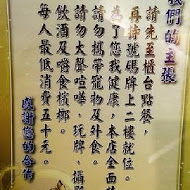 我們的主張
請先至櫃台點餐，
再持號碼牌上二樓就位。
為了您的健康，本店全面禁
請勿攜帶寵物及外食。
請勿大聲喧嘩、玩牌、攝影
飲酒及嚼食檳榔。
每人最低消費五十元。
感謝您的合作